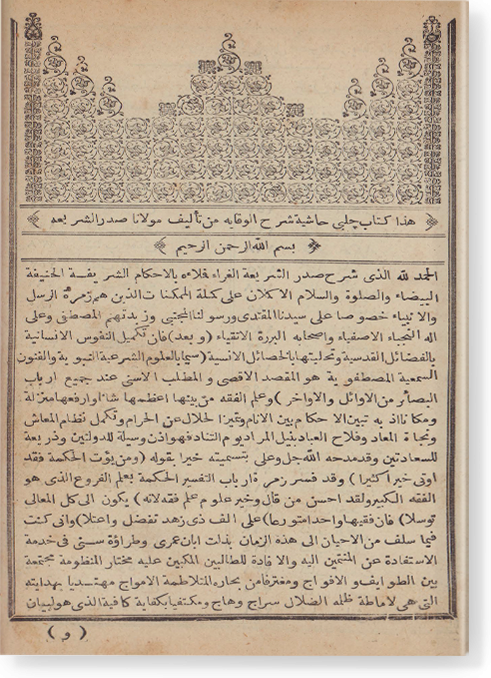 هذا كتاب چلبي حاشية شرح الوقايه من تأليف مولانا صدر الشريعه
بسم الله الرحمن الرحيم
الحمد لله الذى شرح صدر الشريعة الغراء بالاحكام الشريفة الحنيفة
البيضاء والصلوة والسلام الاكملان على كملة الممكنات الذين هم زمرة الرسل
والانبياء خصوصا على سيدنا المقتدى ورسولنا المجتبى وزبدتهم المصطفى وعلى
اله النجباء الاصفياء واصحابه البررة الاتقياء (وبعد) فان تكميل النفوس الانسانية
بالفضائل القدسية وتحليتها بالخصائل الانسية (سيما بالعلوم الشرعية النبوية والفنون
السمعية المصطفوية هو المقصد الاقصى والمطلب الاسنى عند جميع ارباب
البصائر من الاوائل والاواخر) وعلم الفقه من بينها اعظمها شانا وارفعها منزلة
ومكانا اذ به تبين الاحكام بين الانام وتميز الحلال عن الحرام وتكمل نظام المعاش
ونجاة المعاد وفلاح العباد بنيل المراد يوم التناد فهو اذن وسيلة للدولتين وذريعة
للسعادتين وقد مدحه الله جل وعلى بتسميته خيرا بقوله (ومن يؤت الحكمة فقد
اوتى خيرا كثيرا) وقد فسر زمرة ارباب التفسير الحكمة بعلم الفروع الذى هو
الفقه الكبير ولقد احسن من قال وخير علوم علم فقه لانه) يكون الى كل المعالى
توسلا) فان فقيها واحدا متورعا) على الف ذى زهد تفضل واعتلا) وانى كنت
فيما سلف من الاحيان الى هذه الزمان بذلت ابان عمرى وطراوة سنى فى خدمة
الاستفادة عن المنتمين اليه والافادة للطالبين المكبين عليه مختار المنظومة مجتمعة
بين الطوايف والافواج ومغترفا من بحاره المتلاطمة الامواج مهتديا بهدايته
التى هى لاماطة ظلمه الضلال سراج وهاج ومكتفيا بكفاية كافية الذى هو لبيان
(و)